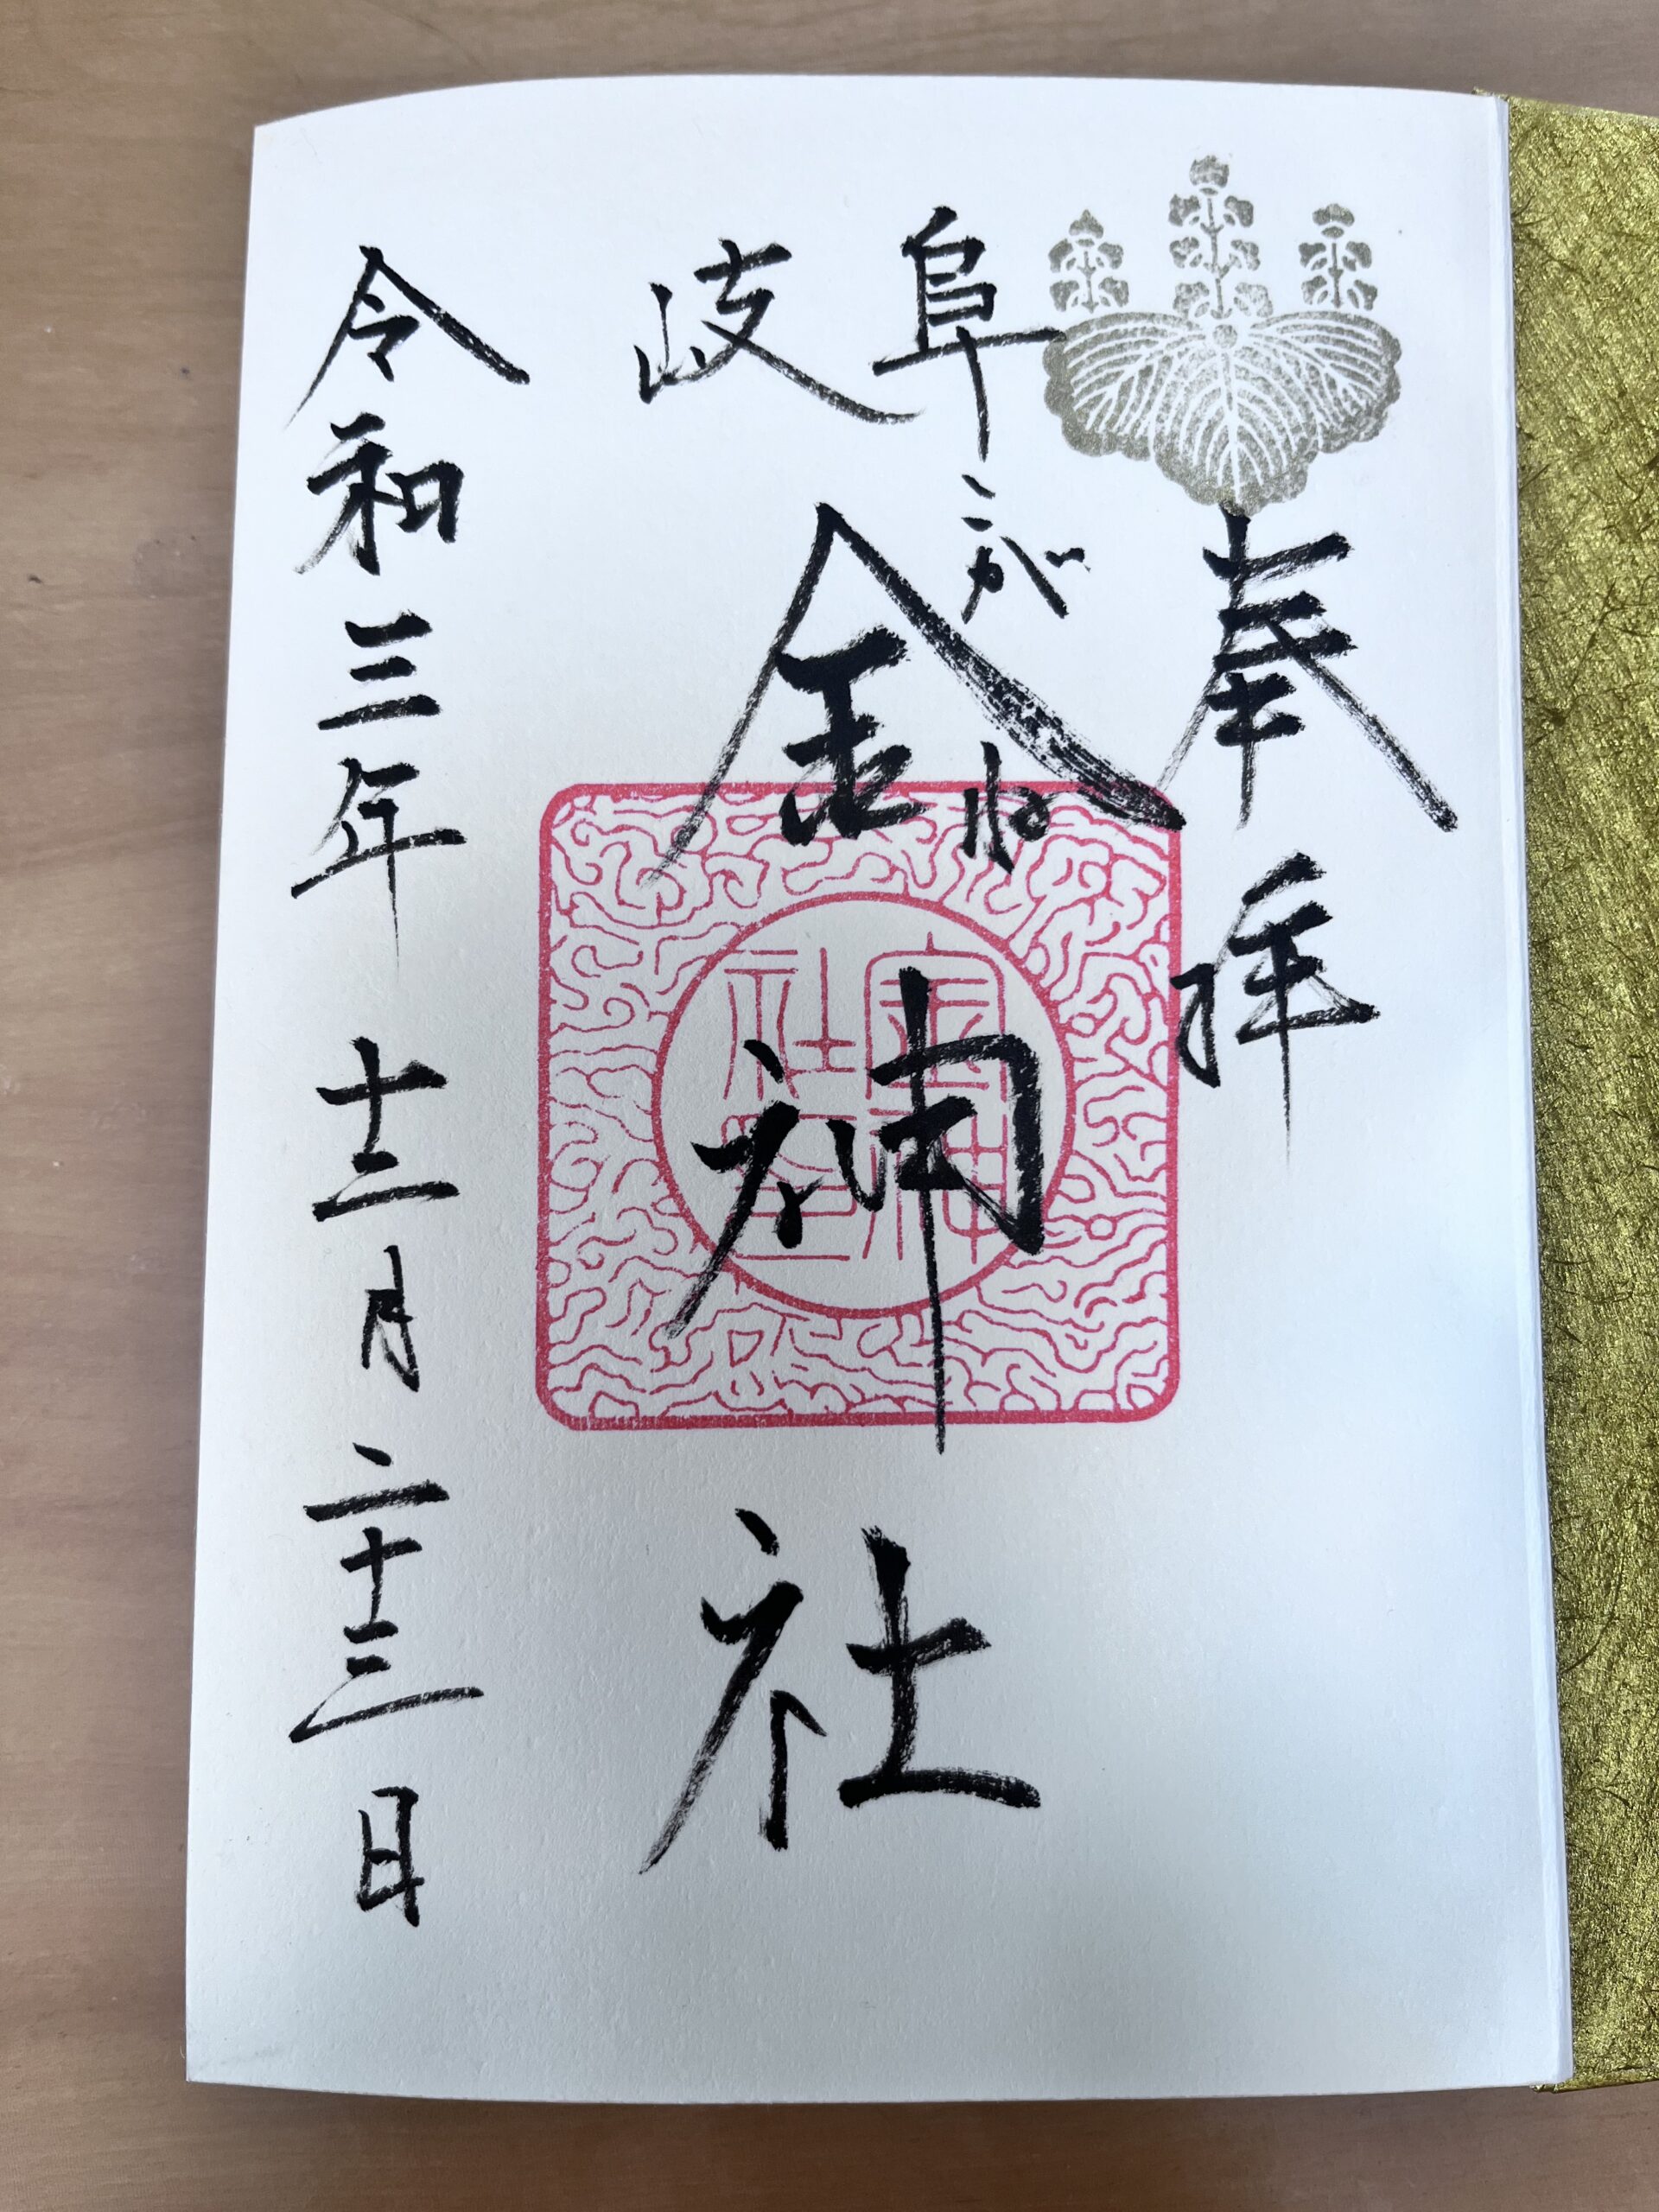 奉拝
岐阜
こがね
金神社
令和三年十二月二十三日